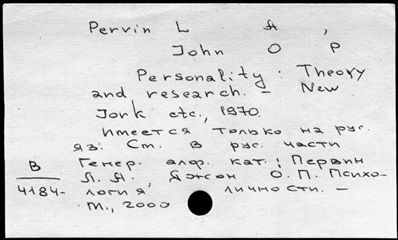 Pervin L A,
John O P
Personality: Theory
and research. – New
Jork etc., 1970
имеется только на рус.
яз. См. в рус. части
В Генер. алф. кат.: Первин
4184- Л. А. Джон О. П. Психо-
логия личности. –
М., 2000